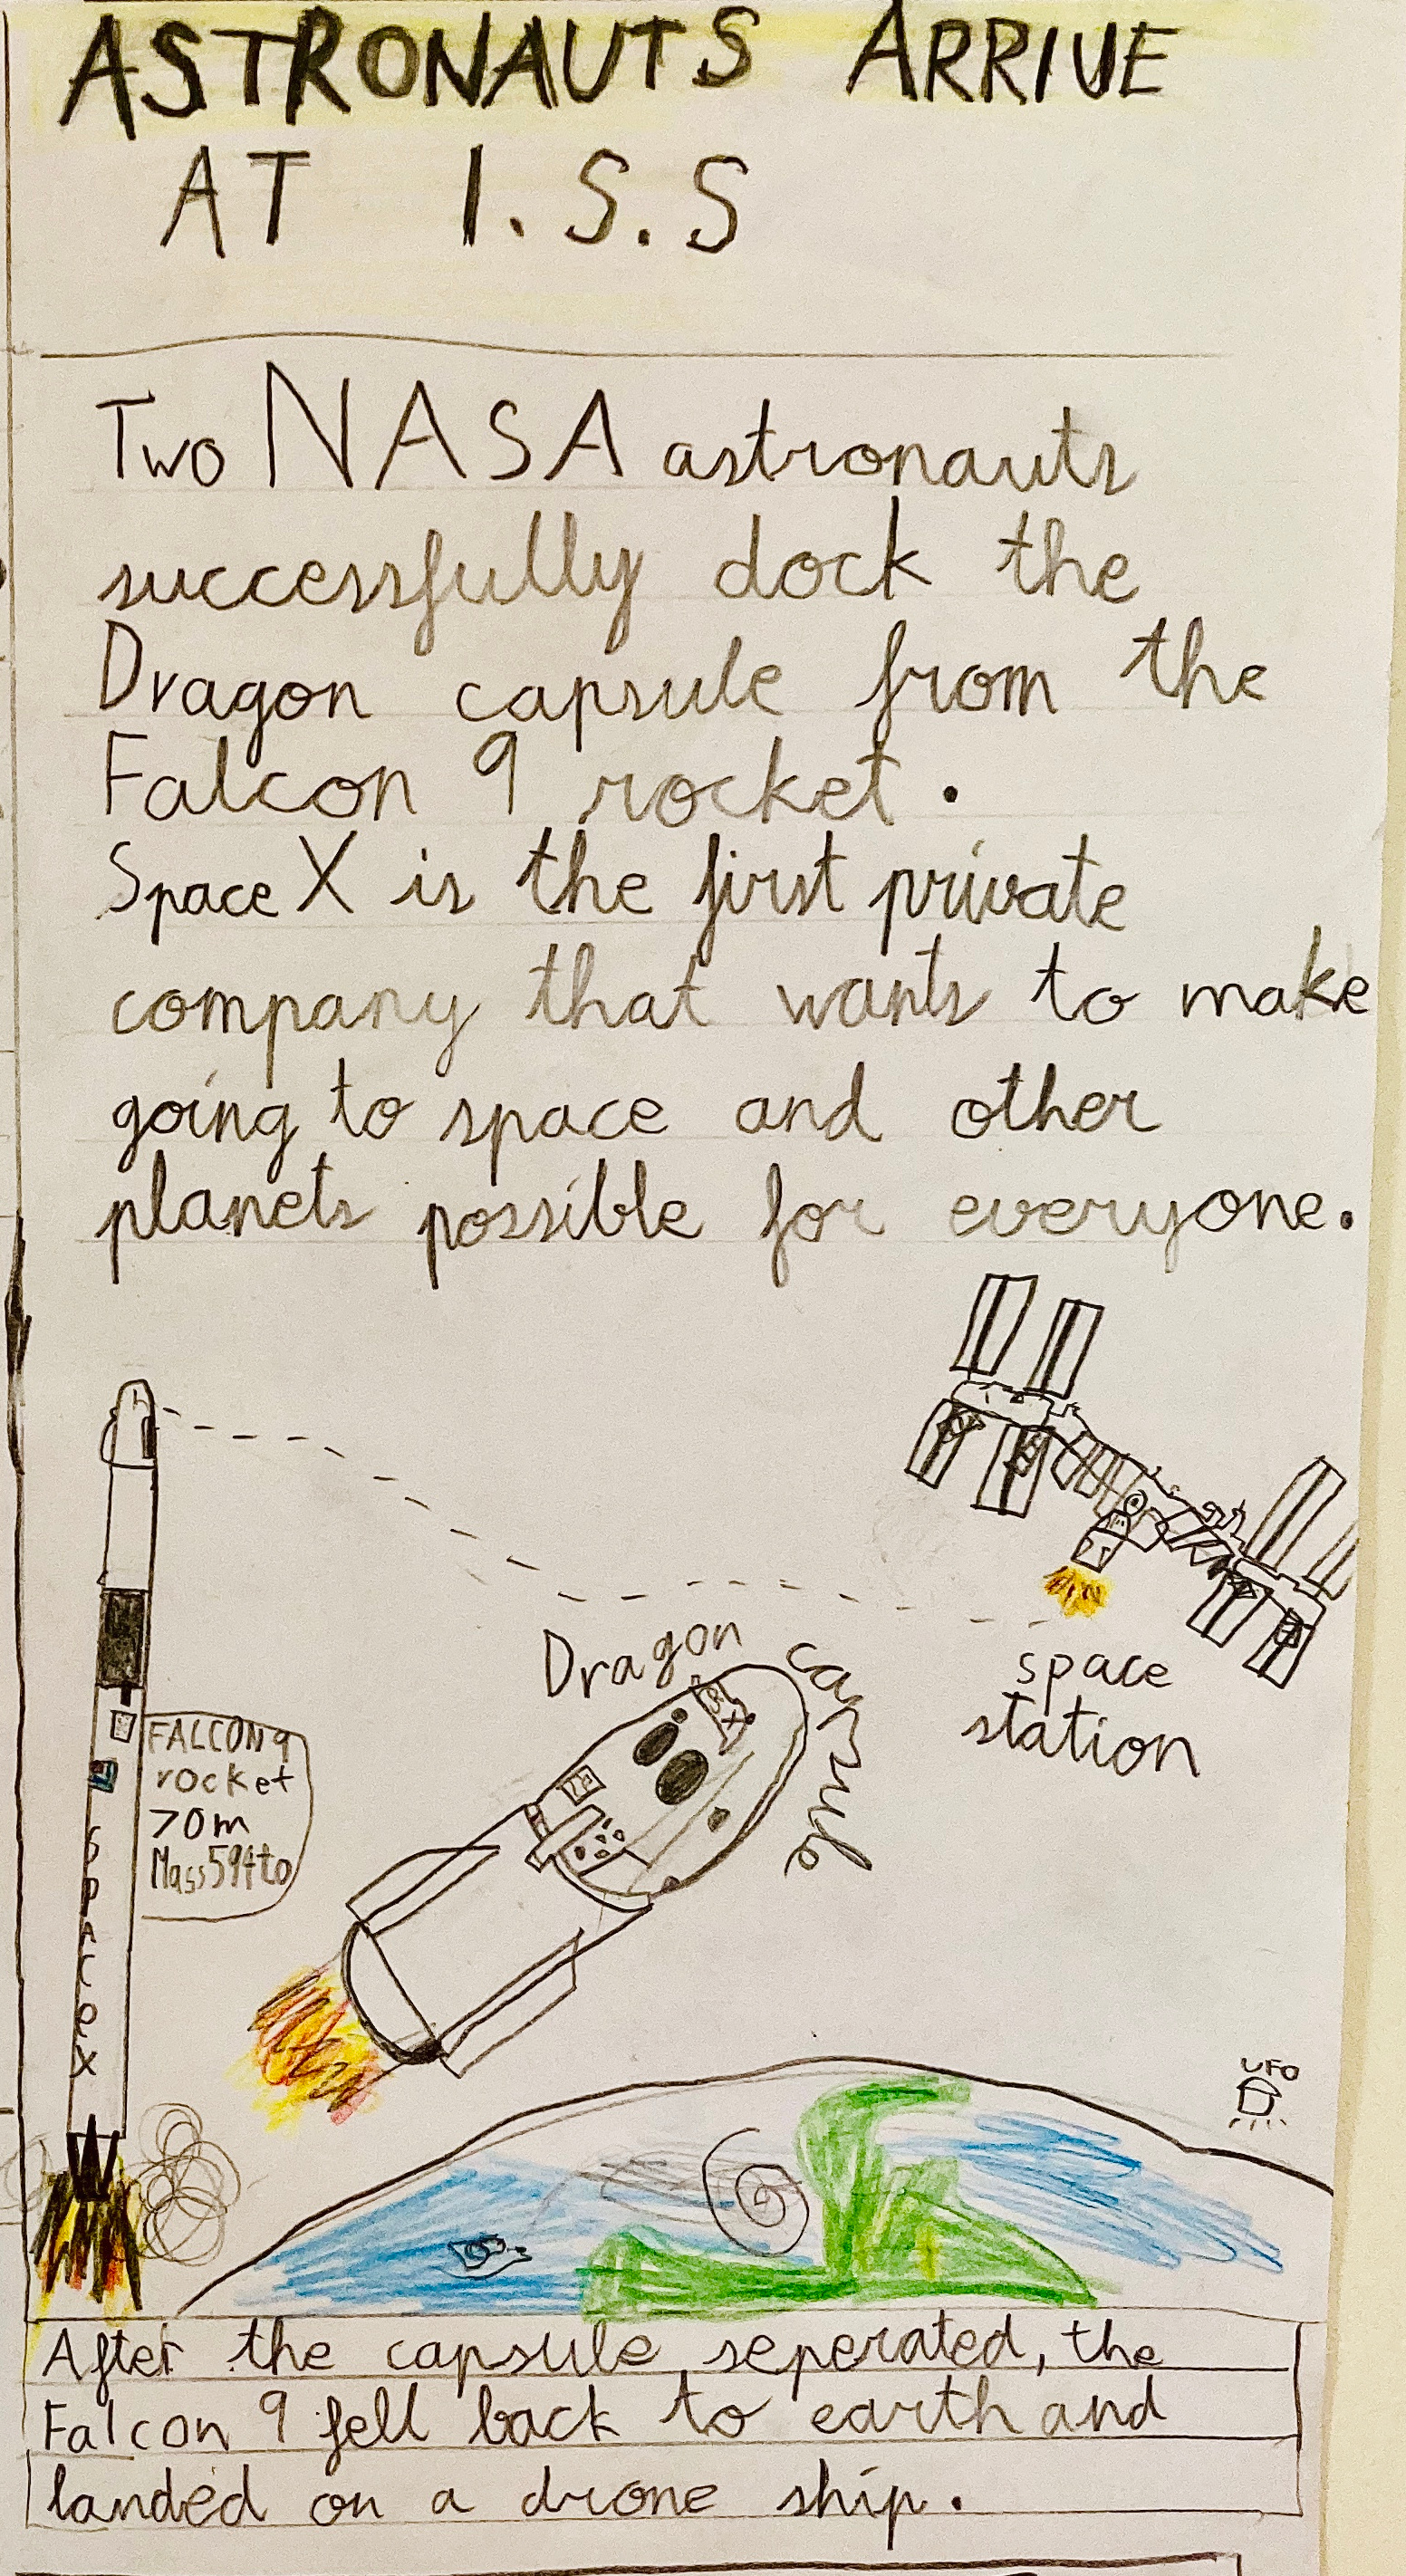 ASTRONAUTS ARRIVE
AT I.S.S
Two NASA astronauts
successfully dock the
Dragon capsule from the
Falcon 9 rocket.
Space X is the first private
company that wants to make
going to space and other
planets possible for everyone.
Dragon capsule
space
station
FALCON 9
rocket
70m
Mass 594to
SPACEX
UFO
After the capsule seperated, the
Falcon 9 fell back to earth and
landed on a drone ship.